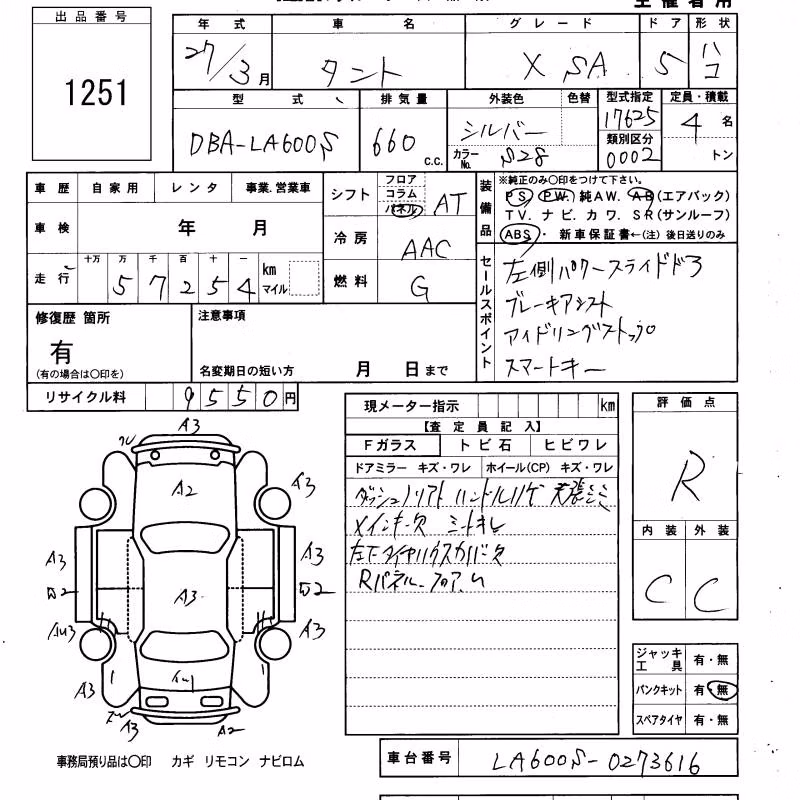 出品番号
1251
年式 車名 グレード ドア 形状
27/3月 タント X SA 5 ハコ
型式 排気量 外装色 色替 型式指定 定員・積載
DBA-LA600S 660 c.c. シルバー 17625 4 名
カラーNo. S28 類別区分 0002 トン
車歴 自家用 レンタ 事業.営業車
車検 年 月
走行 十万 万 千 百 十 一
5 7 2 5 4 km マイル
シフト フロア コラム パネル AT
冷房 AAC
燃料 G
装備品
※純正のみ〇印をつけて下さい。
PS. PW. 純AW. AB(エアバック)
TV. ナビ. カワ. SR(サンルーフ)
ABS・ 新車保証書←(注) 後日送りのみ
セールスポイント
左側パワースライドドア
ブレーキアシスト
アイドリングストップ
スマートキー
修復歴 箇所
有
(有の場合は〇印を)
注意事項
名変期日の短い方 月 日まで
リサイクル料 9550円
現メーター指示 km
【査定員記入】
Fガラス トビ石 ヒビワレ
ドアミラー キズ・ワレ ホイール(CP) キズ・ワレ
メインキー欠 シートキレ
Rパネル
評価点
R
内装 外装
C C
ジャッキ工具 有・無
パンクキット 有・無
スペアタイヤ 有・無
A3
A2
A3
A3
A3
A3
A3
A3
A3
A2
事務局預り品は〇印 カギ リモコン ナビロム
車台番号 LA600S-0273616